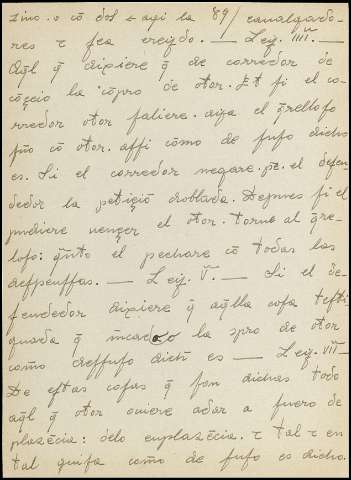 zino. o cō dos + aqi la 89/ caualgado-
res τ sea creydo. — Ley. IIII. —
Aq̄l q̄ dixiere q̄ de corredor de
cōceio la cōpro de otor. Et si el co-
rredor otor saliere. aya el q̄relloso
por cō otor. assi cōmo de suso dicho
es. Si el corredor negare. pe. el defen-
dedor la petiçiō doblada. Depues si el
pudiere uençer el otor. torne al q̄re-
loso: q̄nto el pechare cō todas las
despenssas. — Ley. V. — Si el de-
fendedor dixiere q̄ aq̄lla cosa testi-
guada q̄ mcado la spro de otor
como dessuso dich es — Ley. VII —
De estas cosas q̄ son dichas todo
aq̄l q̄ otor ouiere adar a fuero de
plazēcia: delo enplazēcia. τ tal τ en
tal guisa como de suso es dicho.